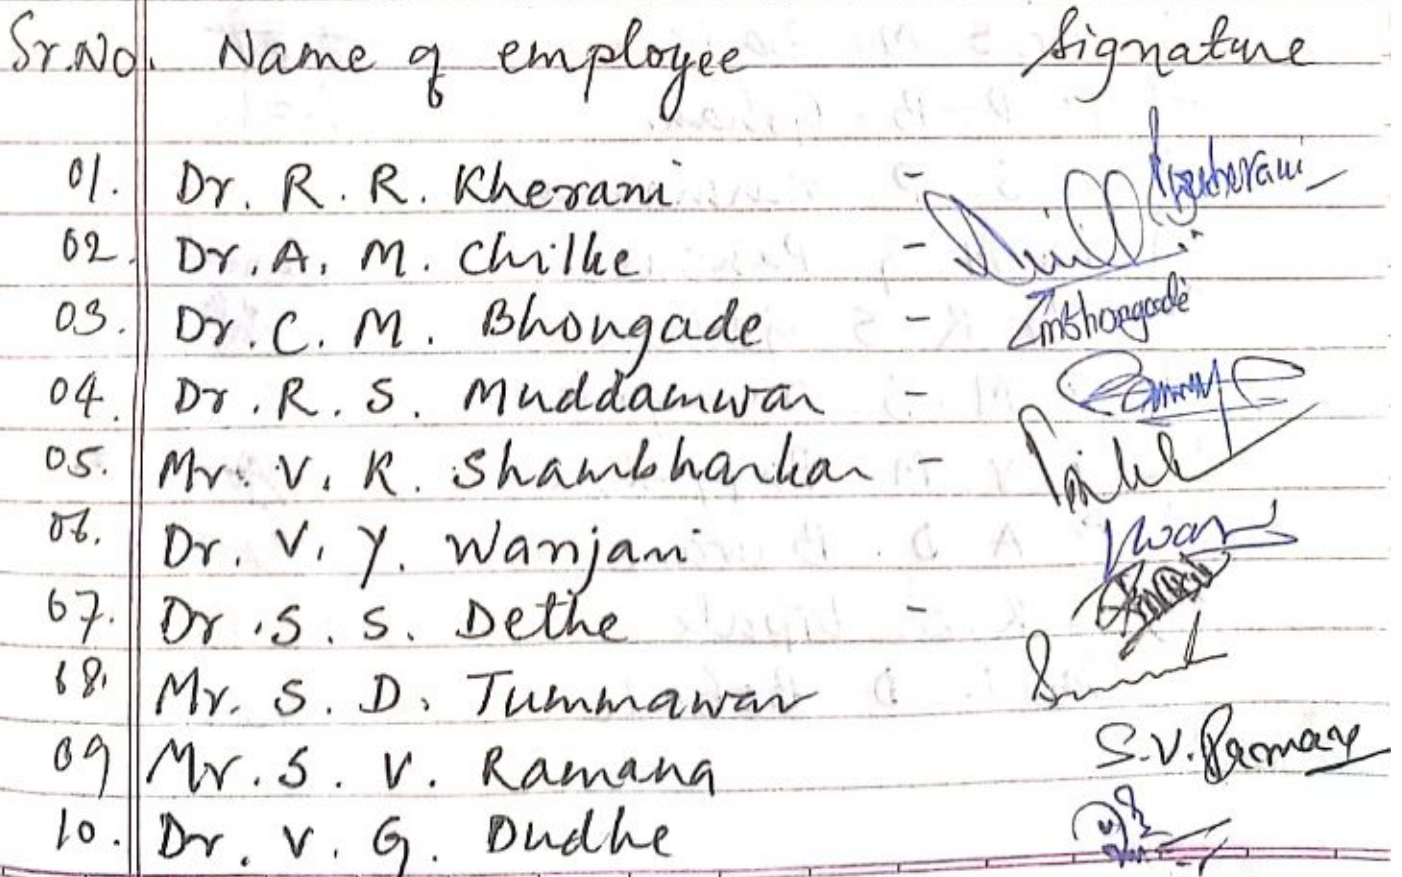 Sr.No. Name of employee Signature
01. Dr. R. R. Kherani -
02. Dr. A. M. Chilke -
03. Dr. C. M. Bhongade - CmBhongade
04. Dr. R. S. Muddamwar -
05. Mr. V. K. Shambharkar -
06. Dr. V. Y. Wanjani
07. Dr. S. S. Dethe -
08. Mr. S. D. Tummawar
09 Mr. S. V. Ramana S.V. Ramana
10. Dr. V. G. Dudhe